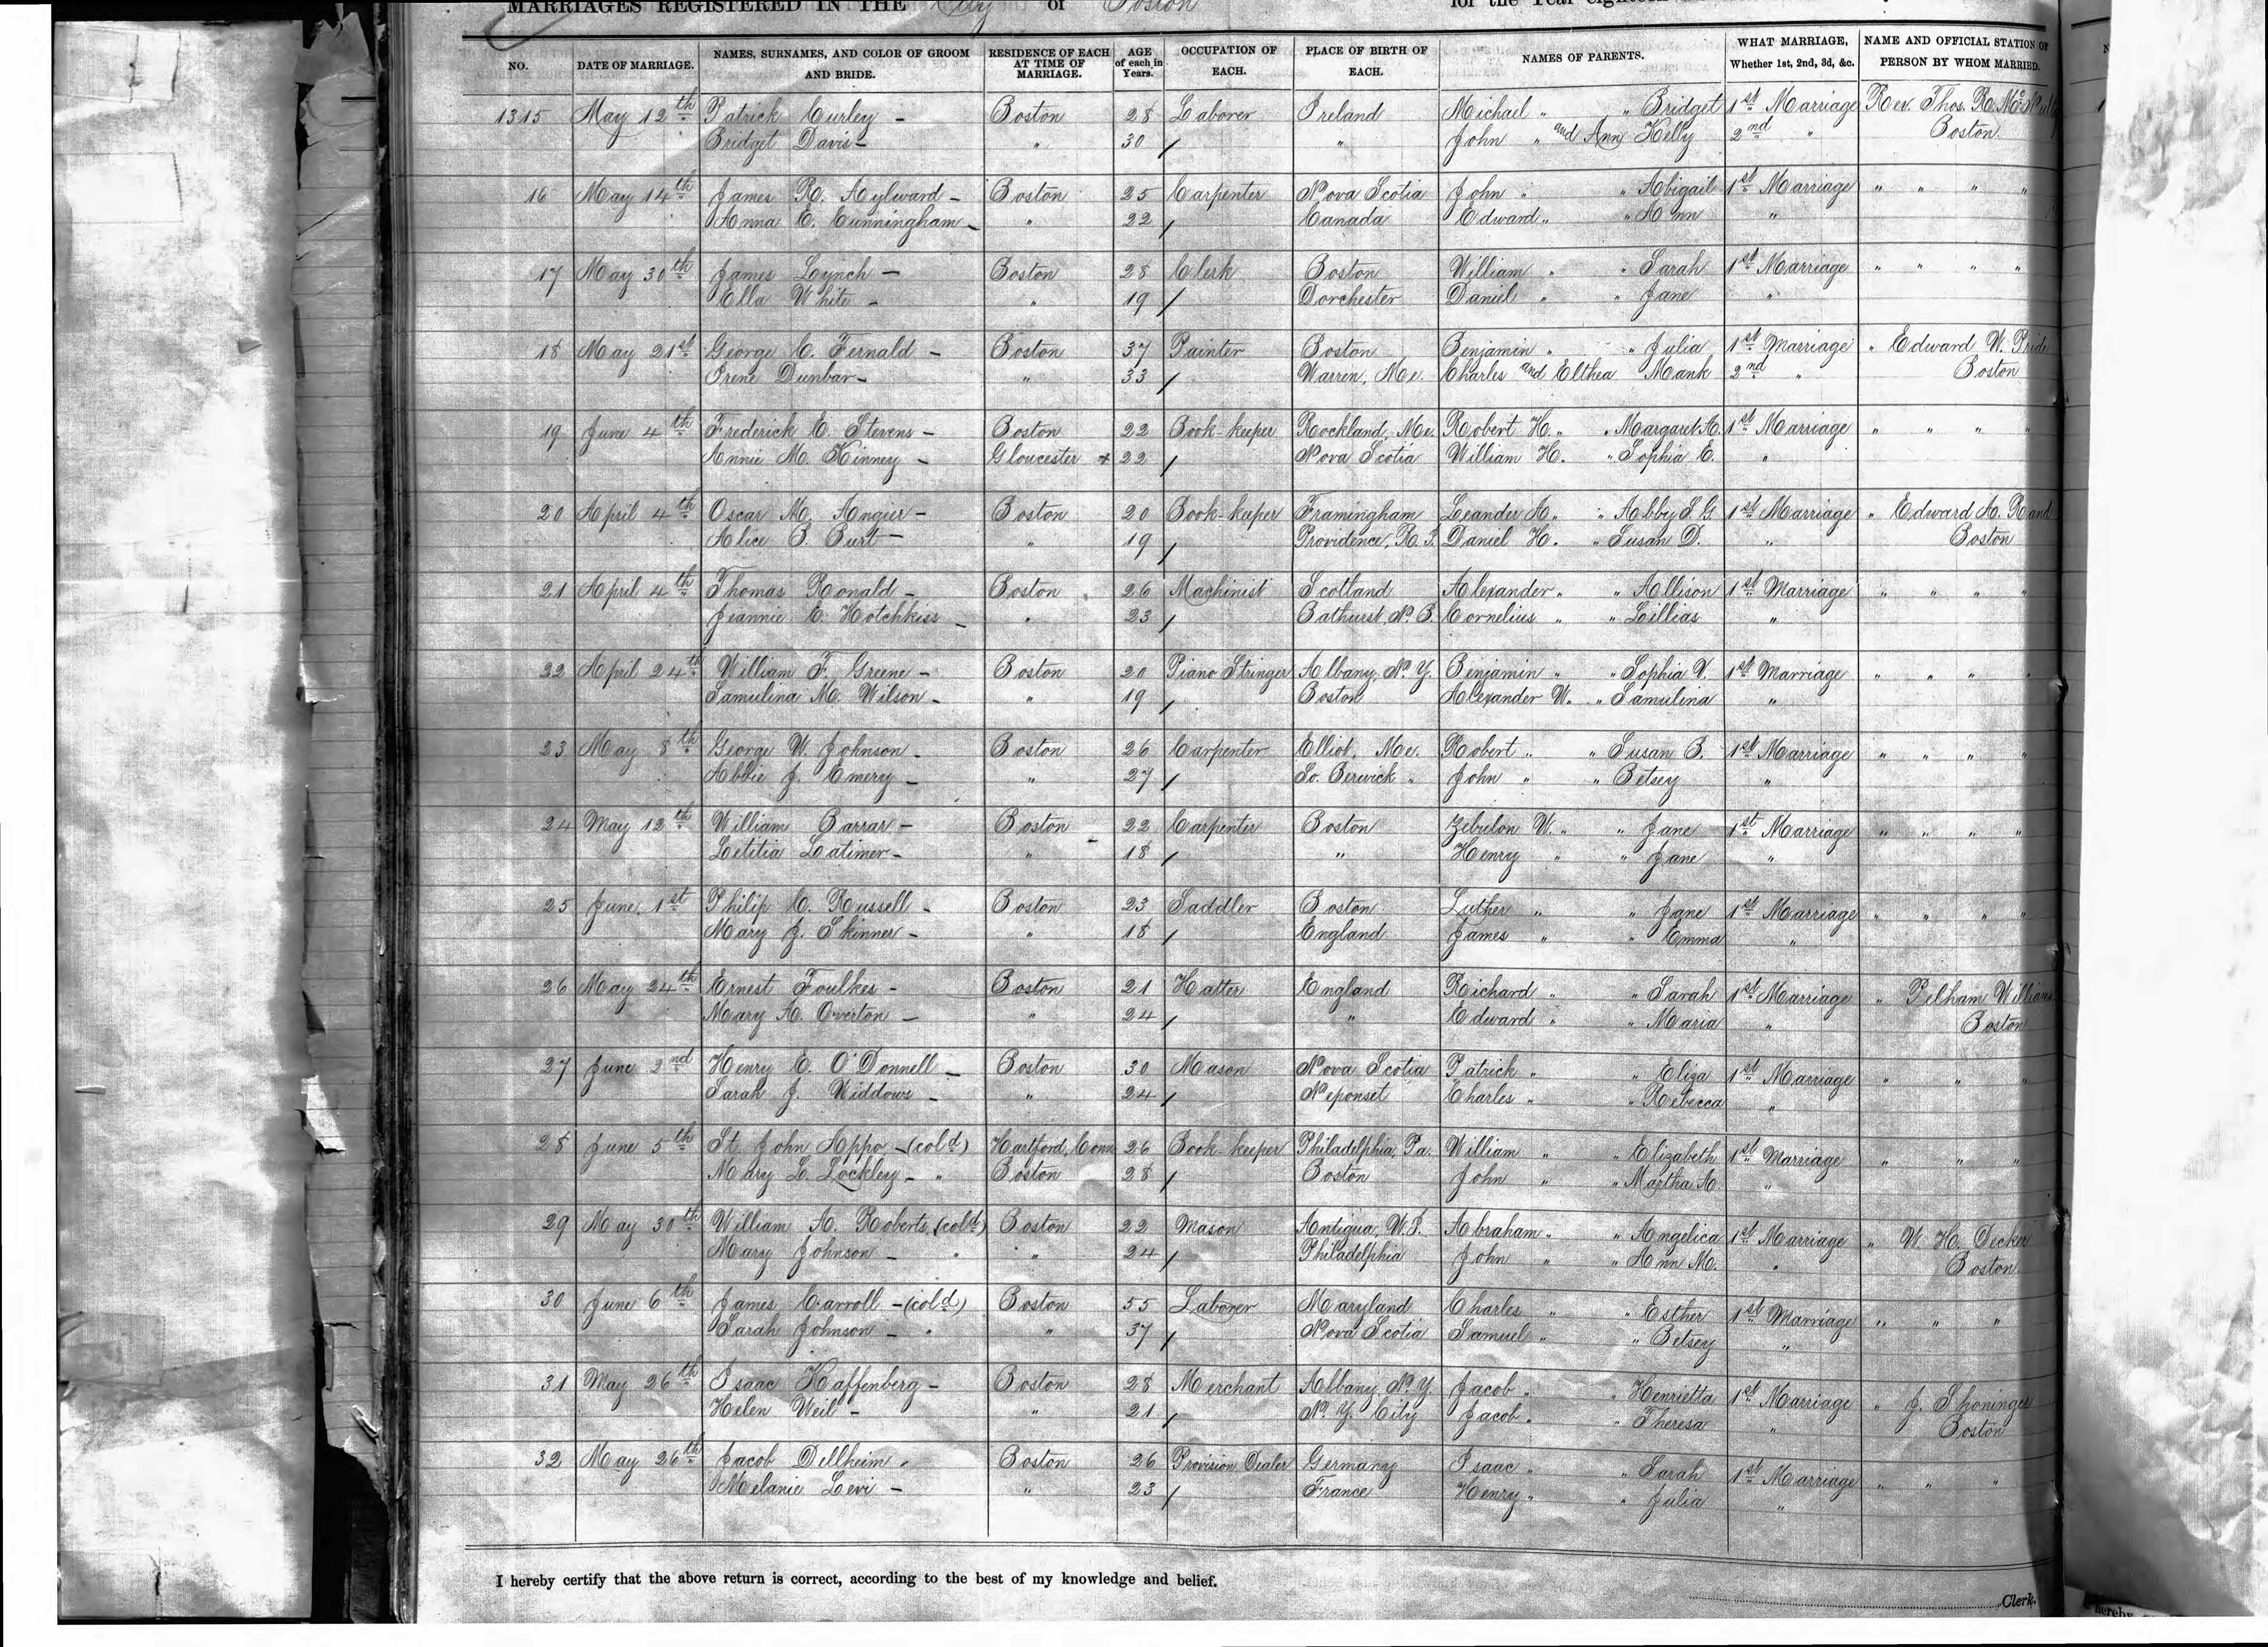 MARRIAGES REGISTERED IN THE City of Boston for the Year eighteen
NO. DATE OF MARRIAGE. NAMES, SURNAMES, AND COLOR OF GROOM AND BRIDE. RESIDENCE OF EACH AT TIME OF MARRIAGE. AGE of each in Years. OCCUPATION OF EACH. PLACE OF BIRTH OF EACH. NAMES OF PARENTS. WHAT MARRIAGE, Whether 1st, 2nd, 3d, &c. NAME AND OFFICIAL STATION OF PERSON BY WHOM MARRIED.
1315 May 12th Patrick Curley - Boston 28 Laborer Ireland Michael " " Bridget 1st Marriage Rev. Thos. R. McNulty
Bridget Davis - " 30 / " John " and Ann Kelly 2nd " Boston
16 May 14th James R. Aylward - Boston 25 Carpenter Nova Scotia John " " Abigail 1st Marriage " " " "
Anna E. Cunningham - " 22 / Canada Edward " " Ann "
17 May 30th James Lynch - Boston 28 Clerk Boston William " " Sarah 1st Marriage " " " "
Ella White - " 19 / Dorchester Daniel " " Jane "
18 May 21st George C. Fernald - Boston 37 Painter Boston Benjamin " " Julia 1st Marriage " Edward W. Pride
Irene Dunbar - " 33 / Warren, Me. Charles and Elthea Mank 2nd " Boston
19 June 4th Frederick E. Stevens - Boston 22 Book-keeper Rockland, Me. Robert H. " " Margaret A. 1st Marriage " " " "
Annie M. Kinney - Gloucester + 22 / Nova Scotia William H. " Sophia E. "
20 April 4th Oscar M. Angier - Boston 20 Book-keeper Framingham Leander A. " " Abby S. G. 1st Marriage " Edward A. Rand
Alice B. Burt - " 19 / Providence, R. I. Daniel H. " Susan D. " Boston
21 April 4th Thomas Ronald - Boston 26 Machinist Scotland Alexander " " Allison 1st Marriage " " " "
Jeannie C. Hotchkiss - " 23 / Bathurst, N. B. Cornelius " " Lillias "
22 April 24th William F. Greene - Boston 20 Piano Stringer Albany, N. Y. Benjamin " " Sophia V. 1st Marriage " " " "
Samulina M. Wilson - " 19 / Boston Alexander W. " Samulina "
23 May 8th George W. Johnson - Boston 26 Carpenter Elliot, Me. Robert " " Susan B. 1st Marriage " " " "
Abbie J. Emery - " 27 / So. Berwick " John " " Betsey "
24 May 12th William Barrar - Boston 22 Carpenter Boston Zebulon W. " " Jane 1st Marriage " " " "
Letitia Latimer - " 18 / " Henry " " Jane "
25 June 1st Philip C. Russell - Boston 23 Saddler Boston Luther " " Jane 1st Marriage " " " "
Mary J. Skinner - " 18 / England James " " Emma "
26 May 24th Ernest Foulkes - Boston 21 Hatter England Richard " " Sarah 1st Marriage " Pelham Williams
Mary A. Overton - " 24 / " Edward " " Maria " Boston
27 June 2nd Henry E. O'Donnell - Boston 30 Mason Nova Scotia Patrick " " Eliza 1st Marriage " " "
Sarah J. Widdows - " 24 / Neponset Charles " " Rebecca "
28 June 5th St. John Appo - (cold) Hartford, Conn 26 Book keeper Philadelphia, Pa. William " " Elizabeth 1st Marriage " " "
Mary L. Lockley - " Boston 28 / Boston John " " Martha A. "
29 May 30th William A. Roberts, (cold) Boston 22 Mason Antigua, W. I. Abraham " " Angelica 1st Marriage " W. H. Decker
Mary Johnson - " " 24 / Philadelphia John " " Ann M. " Boston
30 June 6th James Carroll - (cold) Boston 55 Laborer Maryland Charles " " Esther 1st Marriage " " "
Sarah Johnson - " " 37 / Nova Scotia Samuel " " Betsey "
31 May 26th Isaac Kaffenberg - Boston 28 Merchant Albany, N. Y. Jacob " " Henrietta 1st Marriage " J. Shoninger
Helen Weil - " 21 / N. Y. City Jacob " " Theresa " Boston
32 May 26th Jacob Dellheim - Boston 26 Provision Dealer Germany Isaac " " Sarah 1st Marriage " " "
Melanie Levi - " 23 / France Henry " " Julia "
I hereby certify that the above return is correct, according to the best of my knowledge and belief.
Clerk.
hereby